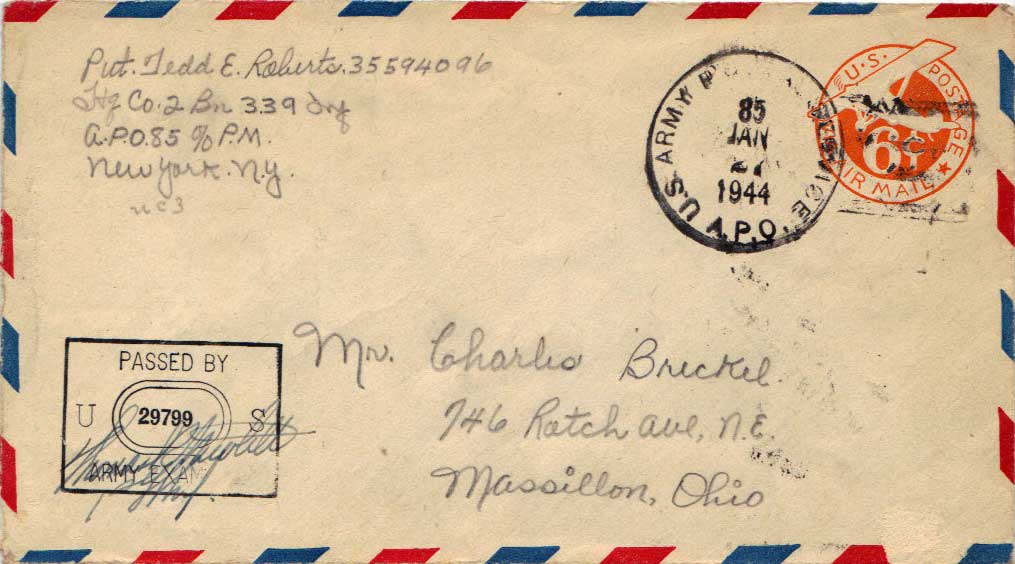 Pvt. Tedd E. Roberts. 35594096
Hq Co. 2 Bn 339 Inf
A.P.O. 85 c/o P.M.
New York. N.Y.
U.S. ARMY
85
JAN
1944
A.P.O.
U.S. POSTAGE
6¢
AIR MAIL
PASSED BY
U 29799 S
ARMY EXAM
Mr. Charles Breckel
746 Rotch Ave, N.E.
Massillon, Ohio